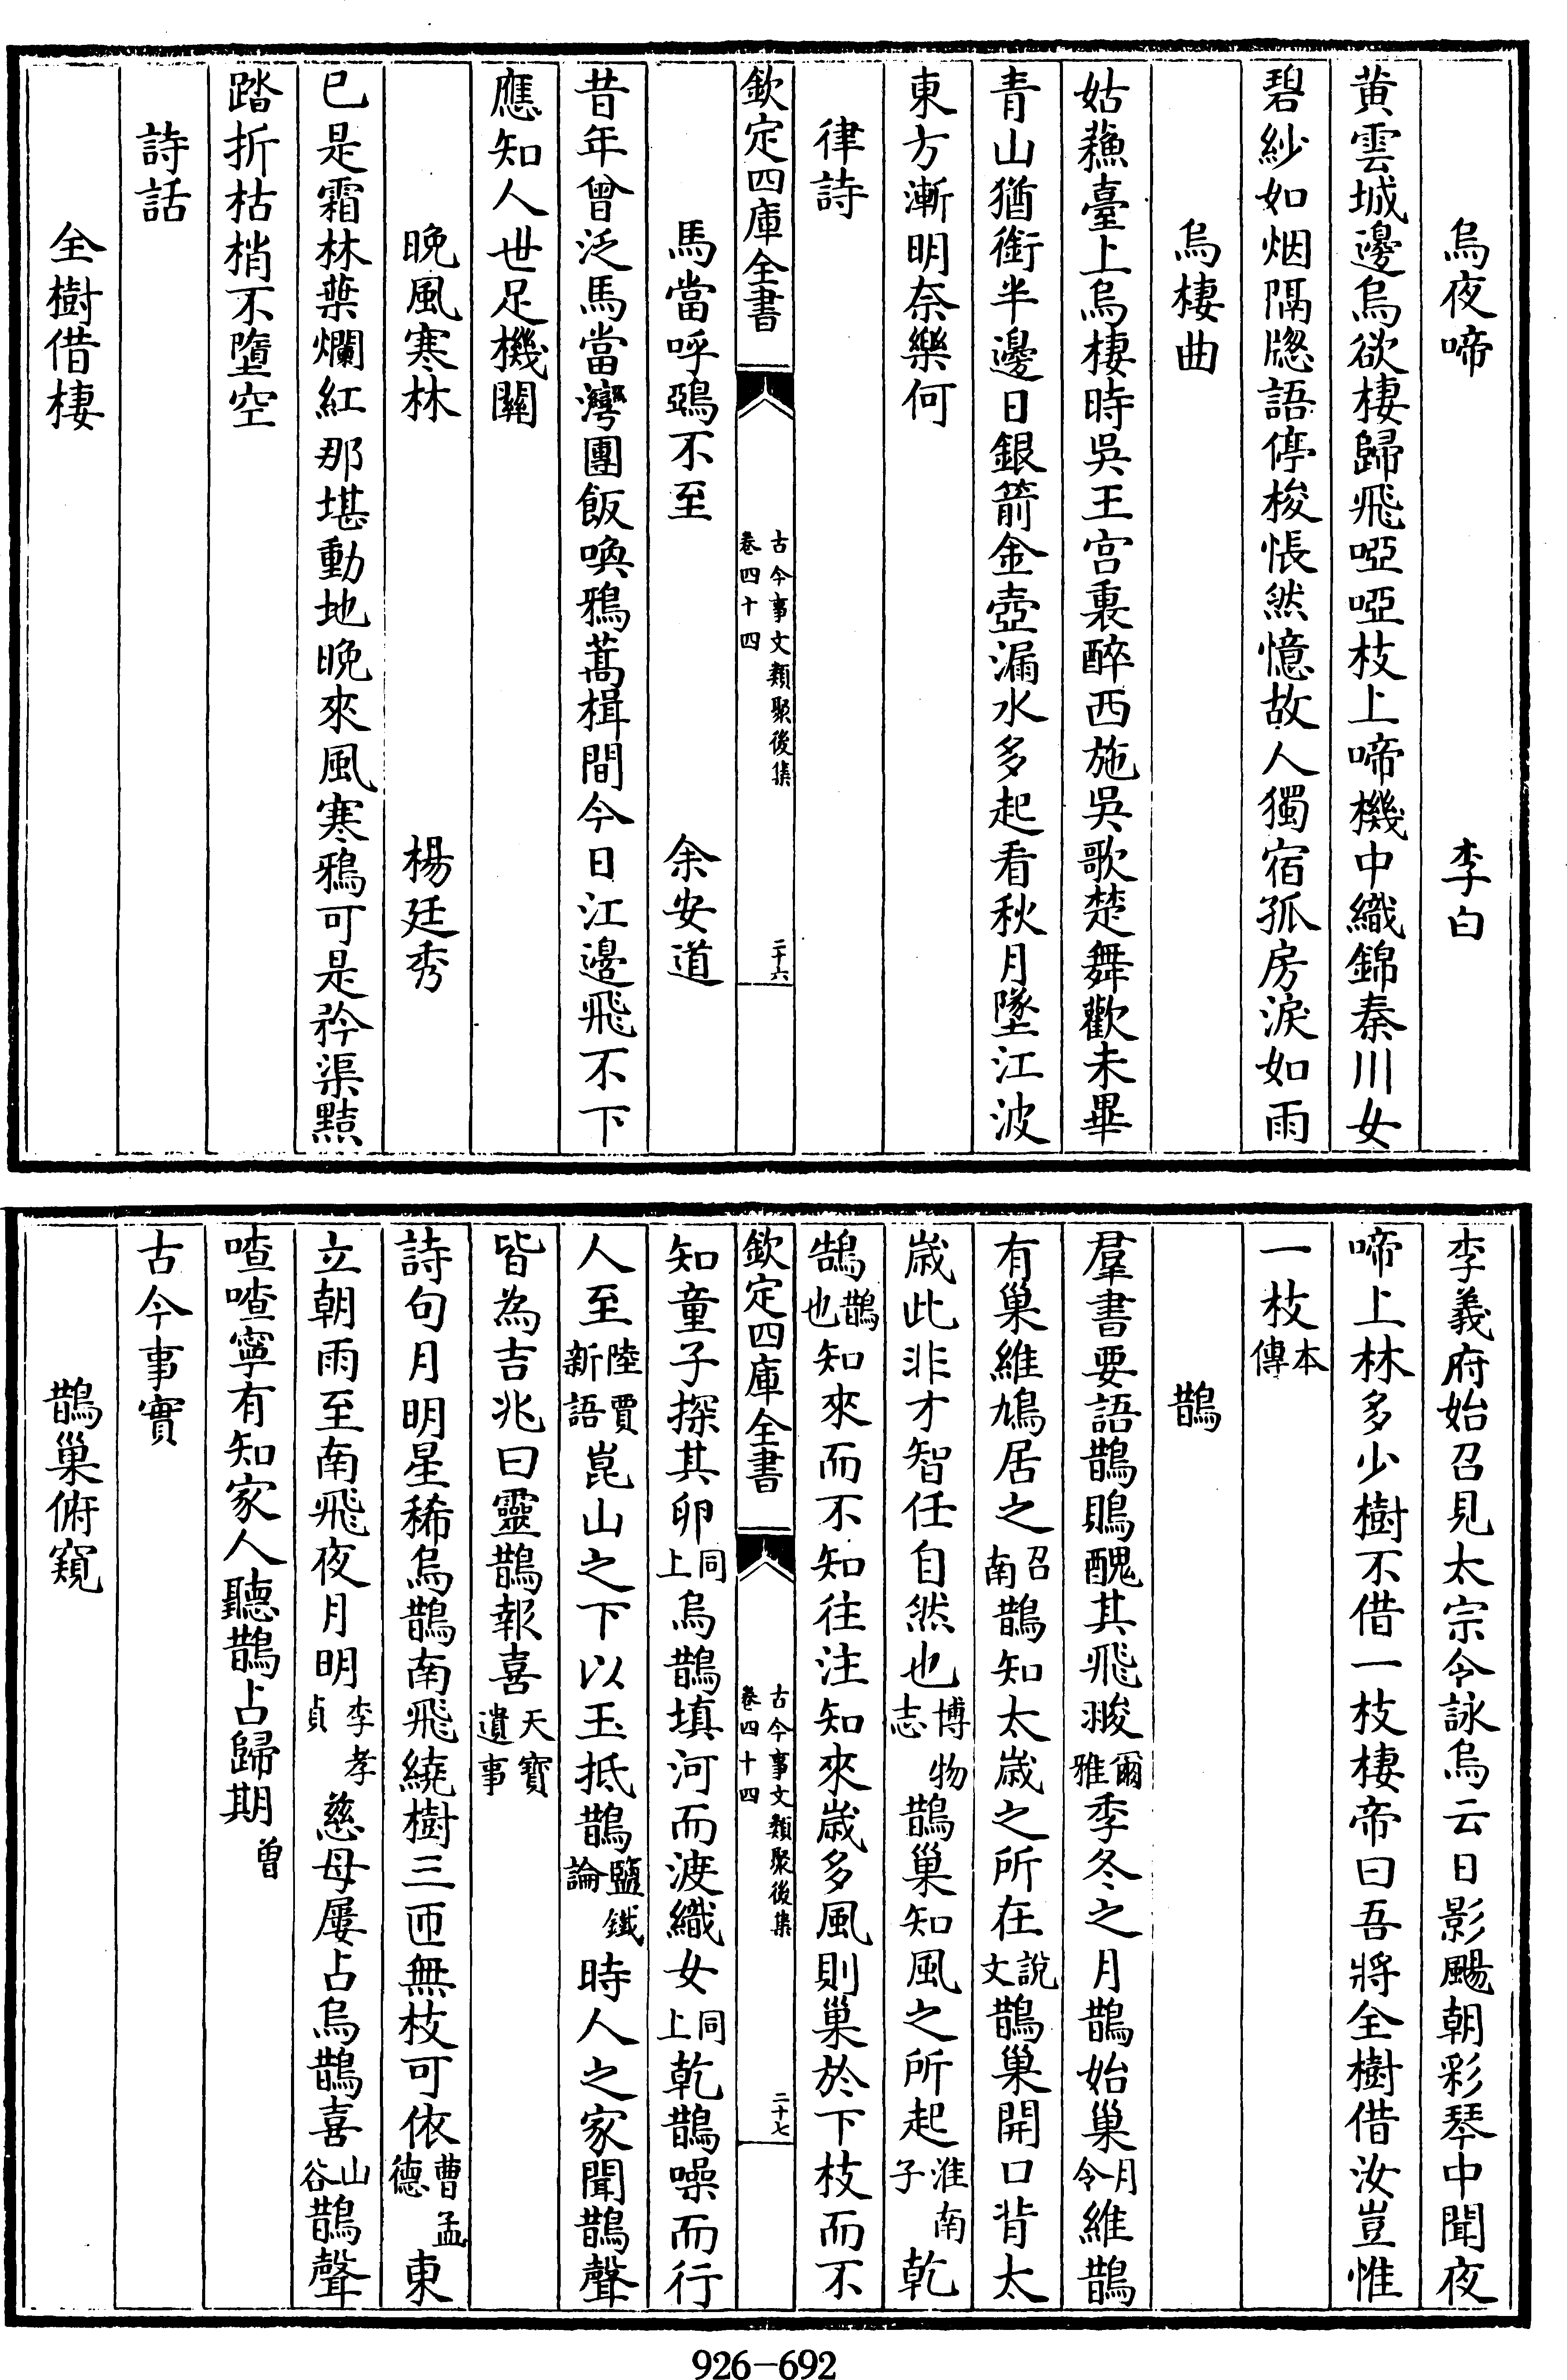 烏夜啼　李白
黄雲城邊烏欲棲歸飛啞啞枝上啼機中織錦秦川女
碧紗如烟隔牕語停梭悵然憶故人獨宿孤房淚如雨
烏棲曲
姑蘓臺上烏棲時吳王宫裏醉西施吳歌楚舞歡未畢
青山猶銜半邊日銀箭金壺漏水多起看秋月墜江波
東方漸明奈樂何
律詩
欽定四庫全書　古今事文類聚後集　卷四十四　二十六
馬當呼鵶不至　余安道
昔年曾泛馬當灣團飯喚鴉蒿楫間今日江邊飛不下
應知人世足機關
晚風寒林　楊廷秀
已是霜林葉爛紅那堪動地晚來風寒鴉可是矜渠黠
踏折枯梢不墮空
詩話
全樹借棲
李義府始召見太宗令詠烏云日影颺朝彩琴中聞夜
啼上林多少樹不借一枝棲帝曰吾將全樹借汝豈惟
一枝本傳
鵲
羣書要語鵲鵙醜其飛翪爾雅季冬之月鵲始巢月令維鵲
有巢維鳩居之召南鵲知太歲之所在說文鵲巢開口背太
歲此非才智任自然也博物志鵲巢知風之所起淮南子乾
鵠鵲也知來而不知往注知來歲多風則巢於下枝而不
欽定四庫全書　古今事文類聚後集　卷四十四　二十七
知童子探其卵同上烏鵲填河而渡織女同上乾鵲噪而行
人至陸賈新語崑山之下以玉抵鵲鹽鐵論時人之家聞鵲聲
皆為吉兆曰靈鵲報喜天寶遺事
詩句月明星稀烏鵲南飛繞樹三匝無枝可依曹孟德東
立朝雨至南飛夜月明李孝貞慈母屢占烏鵲喜山谷鵲聲
喳喳寧有知家人聽鵲占歸期曾
古今事實
鵲巢俯窺
926-692